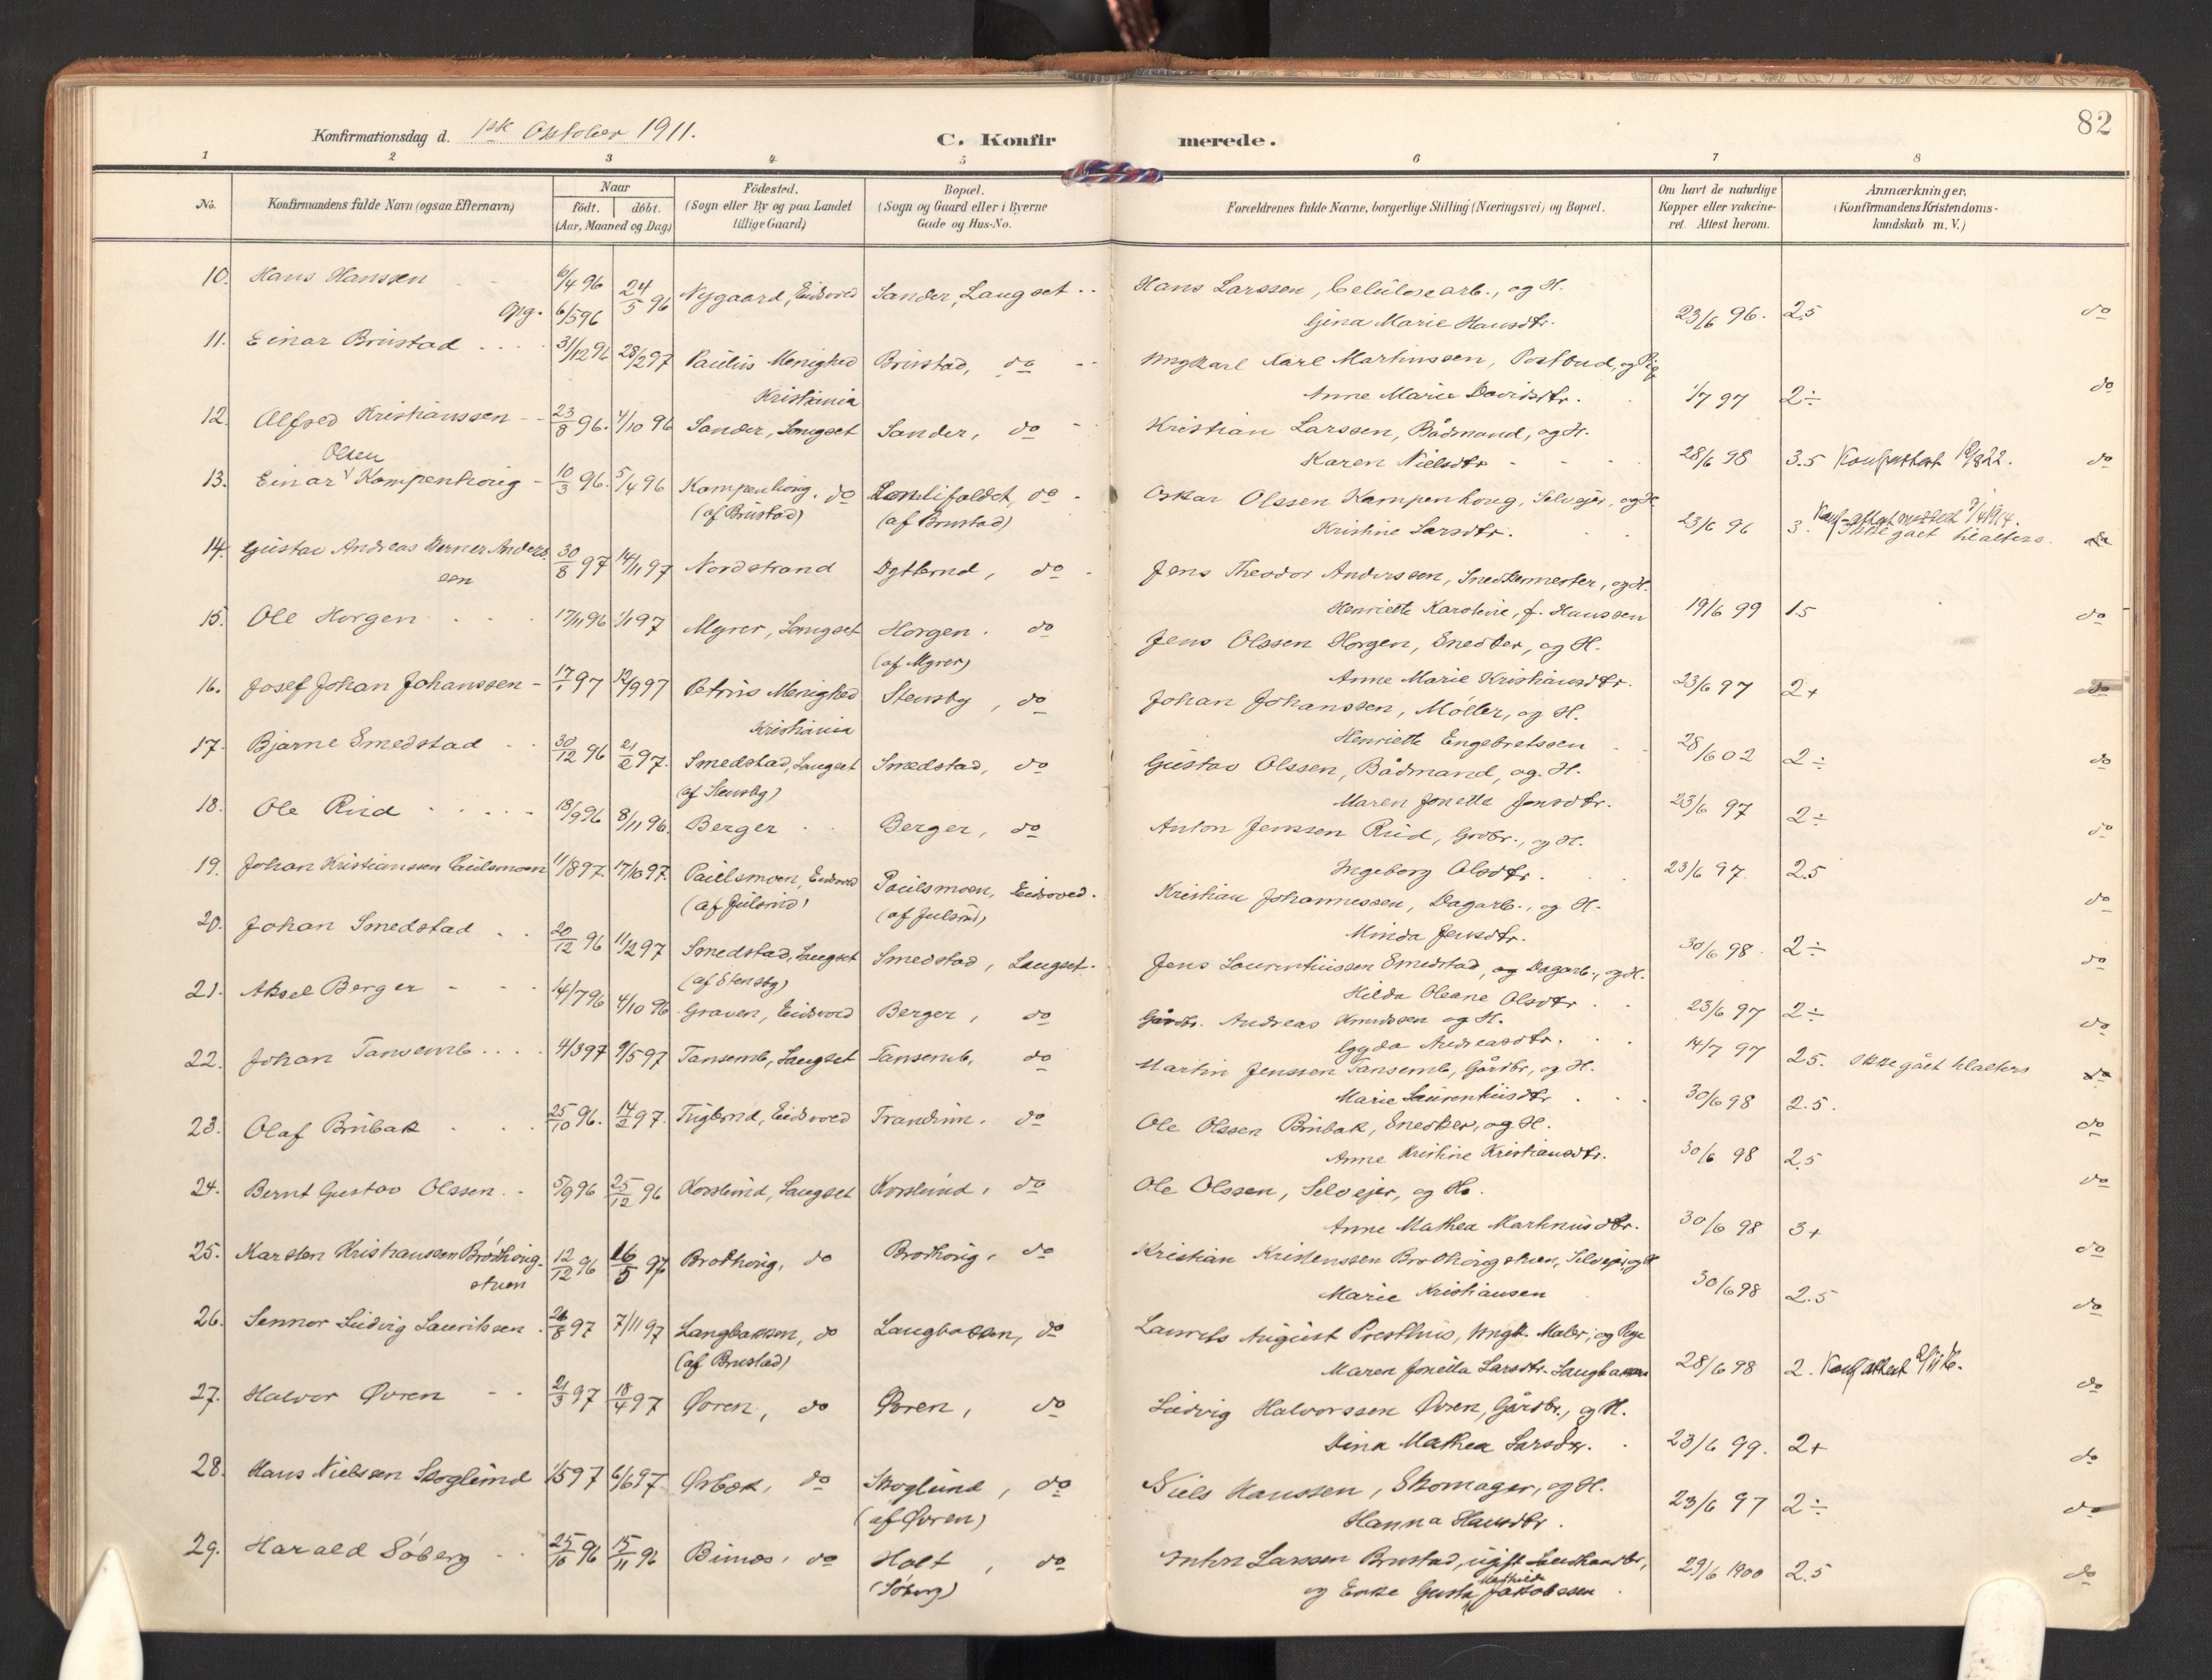 82
Konfirmationsdag d. 1ste Oktober 1911. C. Konfir merede.
1 2 3 4 5 6 7 8
No. Konfirmandens fulde Navn (ogsaa Efternavn) Naar født. døbt. (Aar, Maaned og Dag) Födested. (Sogn eller By og paa Landet tillige Gaard) Bopæl. (Sogn og Gaard eller i Byerne Gade og Hus-No. Forældrenes fulde Navne, borgerlige Stilling (Næringsvei) og Bopæl. Om havt de naturlige Kopper eller vakcineret. Attest herom. Anmærkninger. (Konfirmandens Kristendomskundskab m. V.)
10. Hans Hanssen 6/4 96 24/5 96 Nygaard, Eidsvold Sander, Langset Hans Larssen, Celulosearb., og H.
opg. 6/5 96 Gina Marie Hansdtr. 23/6 96. 2.5 do
11. Einar Brustad 31/12 96 28/2 97 Paulus Menighed Brustad, do Ungkarl Karl Martinssen, Postbud, og Pige
Kristiania Anne Marie Davidsdtr. 1/7 97 2÷ do
12. Alfred Kristianssen 23/8 96. 4/10 96 Sander, Langset Sander, do Kristian Larssen, Bådmand, og H.
Karen Nielsdtr 28/6 98 3.5 Konfattest 10/8 22. do
Olsen
13. Einar Kampenhoug 10/3 96. 5/4 96 Kampenhoug, do do Oskar Olssen Kampenhoug, Selvejer, og H.
(af Brustad) (af Brustad) Kristine Larsdtr. 23/6 96 3. Konf-attest 1914.
Ikke gået til alters. do
14. Gustav Andreas Werner Anderssen 30/8 97 14/11 97 Nordstrand do Jens Theodor Anderssen, Snedkermester, og H.
Henriette Karoline, f. Hanssen 19/6 99 1.5 do
15. Ole Horgen 17/11 96 1/1 97 Myrer, Langset Horgen. do Jens Olssen Horgen, Snedker, og H.
(af Myrer) Anne Marie Kristiansdtr. 23/6 97 2+ do
16. Josef Johan Johanssen 17/1 97 12/9 97 Petrus Menighed Stensby, do Johan Johanssen, Møller, og H.
Kristiania Henriette Engebretssen 28/6 02 2÷ do
17. Bjarne Smedstad 30/12 96 21/2 97. Smedstad, Langset Smedstad, do Gustav Olssen, Bådmand, og H.
(af Stensby) Maren Jonette Jensdtr. 23/6 97 2÷ do
18. Ole Rud 18/9 96 8/11 96. Berger Berger, do Anton Jenssen Rud, Grdbr., og H.
Ingeborg Olsdtr. 23/6 97 2.5 do
19. Johan Kristianssen Paulsmoen 11/8 97. 17/10 97. Paulsmoen, Eidsvold Paulsmoen, Eidsvold. Kristian Johannessen, Dagarb., og H.
(af Julsrud) (af Julsrud) Minda Jensdtr. 30/6 98. 2÷ do
20. Johan Smedstad 20/12 96 11/2 97 Smedstad, Langset Smedstad, Langset. Jens Laurentiussen Smedstad, og Dagarb., og H.
(af Stensby) Hilda Oleane Olsdtr 23/6 97 2÷ do
21. Aksel Berger 14/7 96 4/10 96 Graven, Eidsvold Berger, do Gårdbr. Andreas Knudssen og H.
Gyda Andreasdtr. 14/7 97 2.5. Ikke gået til alters do
22. Johan Tansemb 4/3 97 9/5 97 Tansemb, Langset Tansemb, do Martin Jenssen Tansemb, Gårdbr, og H.
Marie Laurentiusdtr 30/6 98 2.5. do
23. Olaf Brubak 25/10 96. 14/2 97. Eidsvold Trandum. do Ole Olssen Brubak, Snedker, og H.
Anne Kristine Kristiansdtr. 30/6 98 2.5 do
24. Bernt Gustav Olssen 5/9 96 25/12 96 Korslund, Langset Korslund, do Ole Olssen, Selvejer, og H.
Anne Mathea Martinusdtr. 30/6 98 3+ do
25. Karsten Kristianssen Brodhougstuen 12/12 96 16/5 97 Brodhoug, do Brodhoug, do Kristian Kristenssen Brodhougstuen, Selvejer, og H
Marie Kristiansen 30/6 98 2.5 do
26. Sennor Ludvig Lauritssen 26/8 97 7/11 97 Langbakken, do Langbakken, do Laurits August Presthus, Ungk. Maler, og Pige
(af Brustad) Maren Jonetta Larsdtr. Langbakken 28/6 98 2. Konfattest 2/11 16. do
27. Halvor Øvren 21/3 97 18/4 97 Øvren, do Øvren, do Ludvig Halvorssen Øvren, Gårdbr., og H.
Dina Mathea Larsdtr. 23/6 99. 2+ do
28. Hans Nielssen Skoglund 1/5 97 6/6 97 Ørbæk, do Skoglund, do Niels Hanssen, Skomager, og H.
(af Øvren) Hanna Hansdtr. 23/6 97 2÷ do
29. Harald Søberg 25/10 96 15/11 96 do Holt, do John Larssen Brustad, ugift Landhandlr,
(Søberg) og Enke Gusta Mathilde Jakobssen 29/6 1900 2.5 do